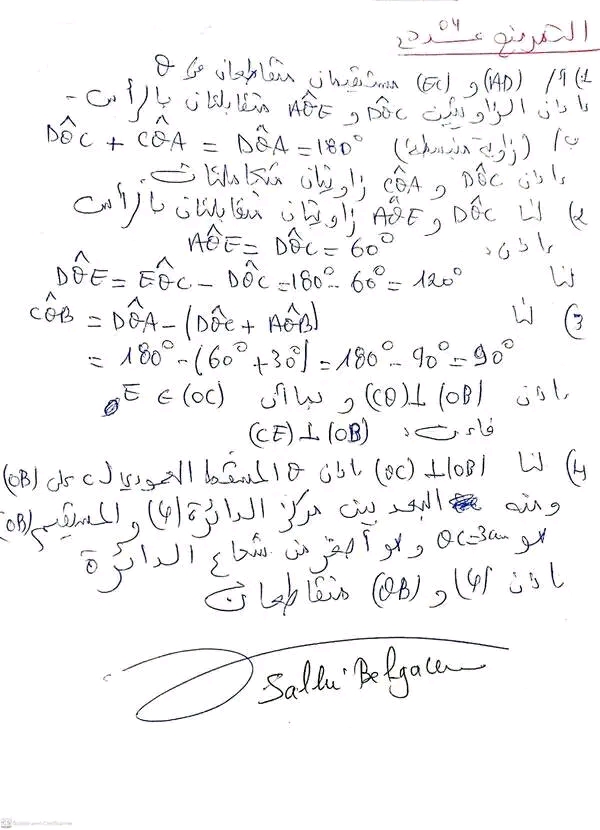 التمرين عدد 04
1) أ/ (AD) و (EC) مستقيمان متقاطعان في O
إذن الزاويتين DÔC و AÔE متقابلتان بالرأس.
ب/ (زاوية منبسطة) DÔC + CÔA = DÔA = 180°
إذن DÔC و CÔA زاويتان متكاملتان.
2) لنا DÔC و AÔE زاويتان متقابلتان بالرأس
إذن: AÔE = DÔC = 60°
لنا DÔE = EÔC - DÔC = 180° - 60° = 120°
3) لنا CÔB = DÔA - (DÔC + AÔB)
= 180° - (60° + 30°) = 180° - 90° = 90°
إذن (OB) ⊥ (CO) و بما أن E ∈ (OC)
فإن: (CE) ⊥ (OB)
4) لنا (OB) ⊥ (OC) إذن O المسقط العمودي لـ C على (OB)
ومنه البعد بين مركز الدائرة (φ) و المستقيم (OB)
هو OC=3cm وهو أصغر من شعاع الدائرة
إذن (φ) و (OB) متقاطعان
Salhi Belgacem